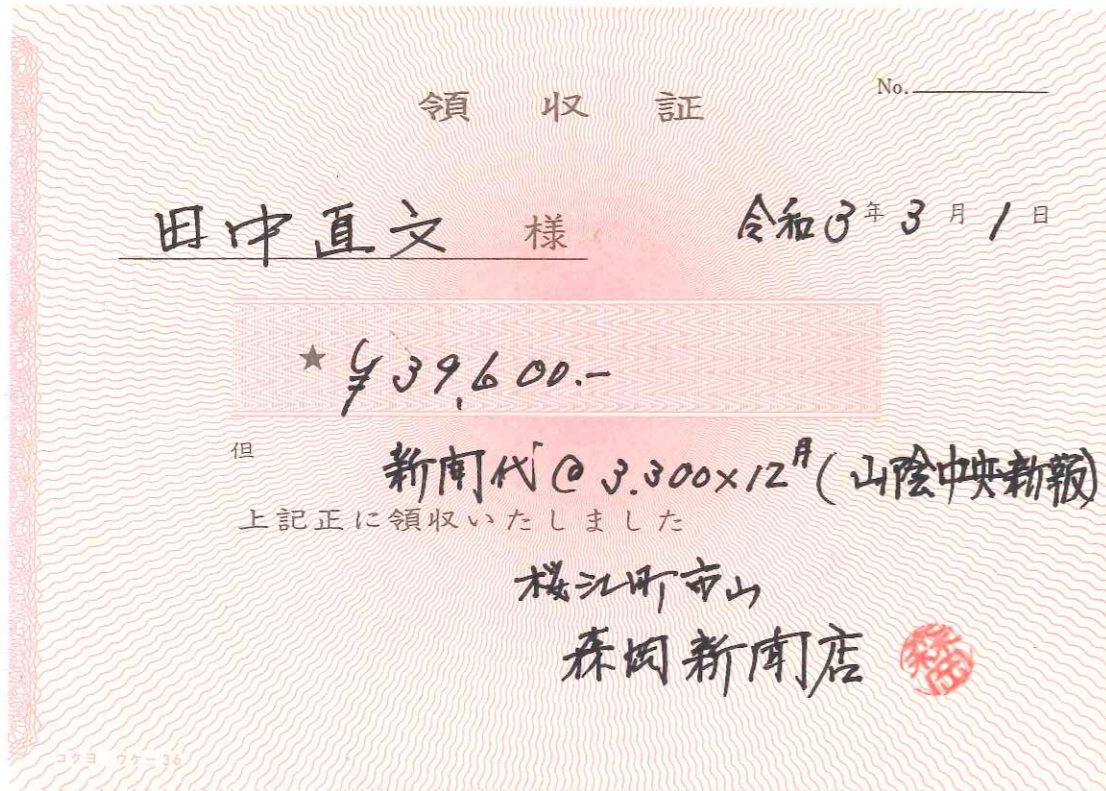 領収証
No.
田中直文 様
令和3年3月1日
★ ¥39,600.-
但 新聞代@3.300×12月(山陰中央新報)
上記正に領収いたしました
桜江町市山
森岡新聞店 森岡
コクヨ ウケ-36